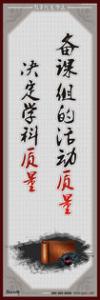 备课组的活动质量
决定学科质量